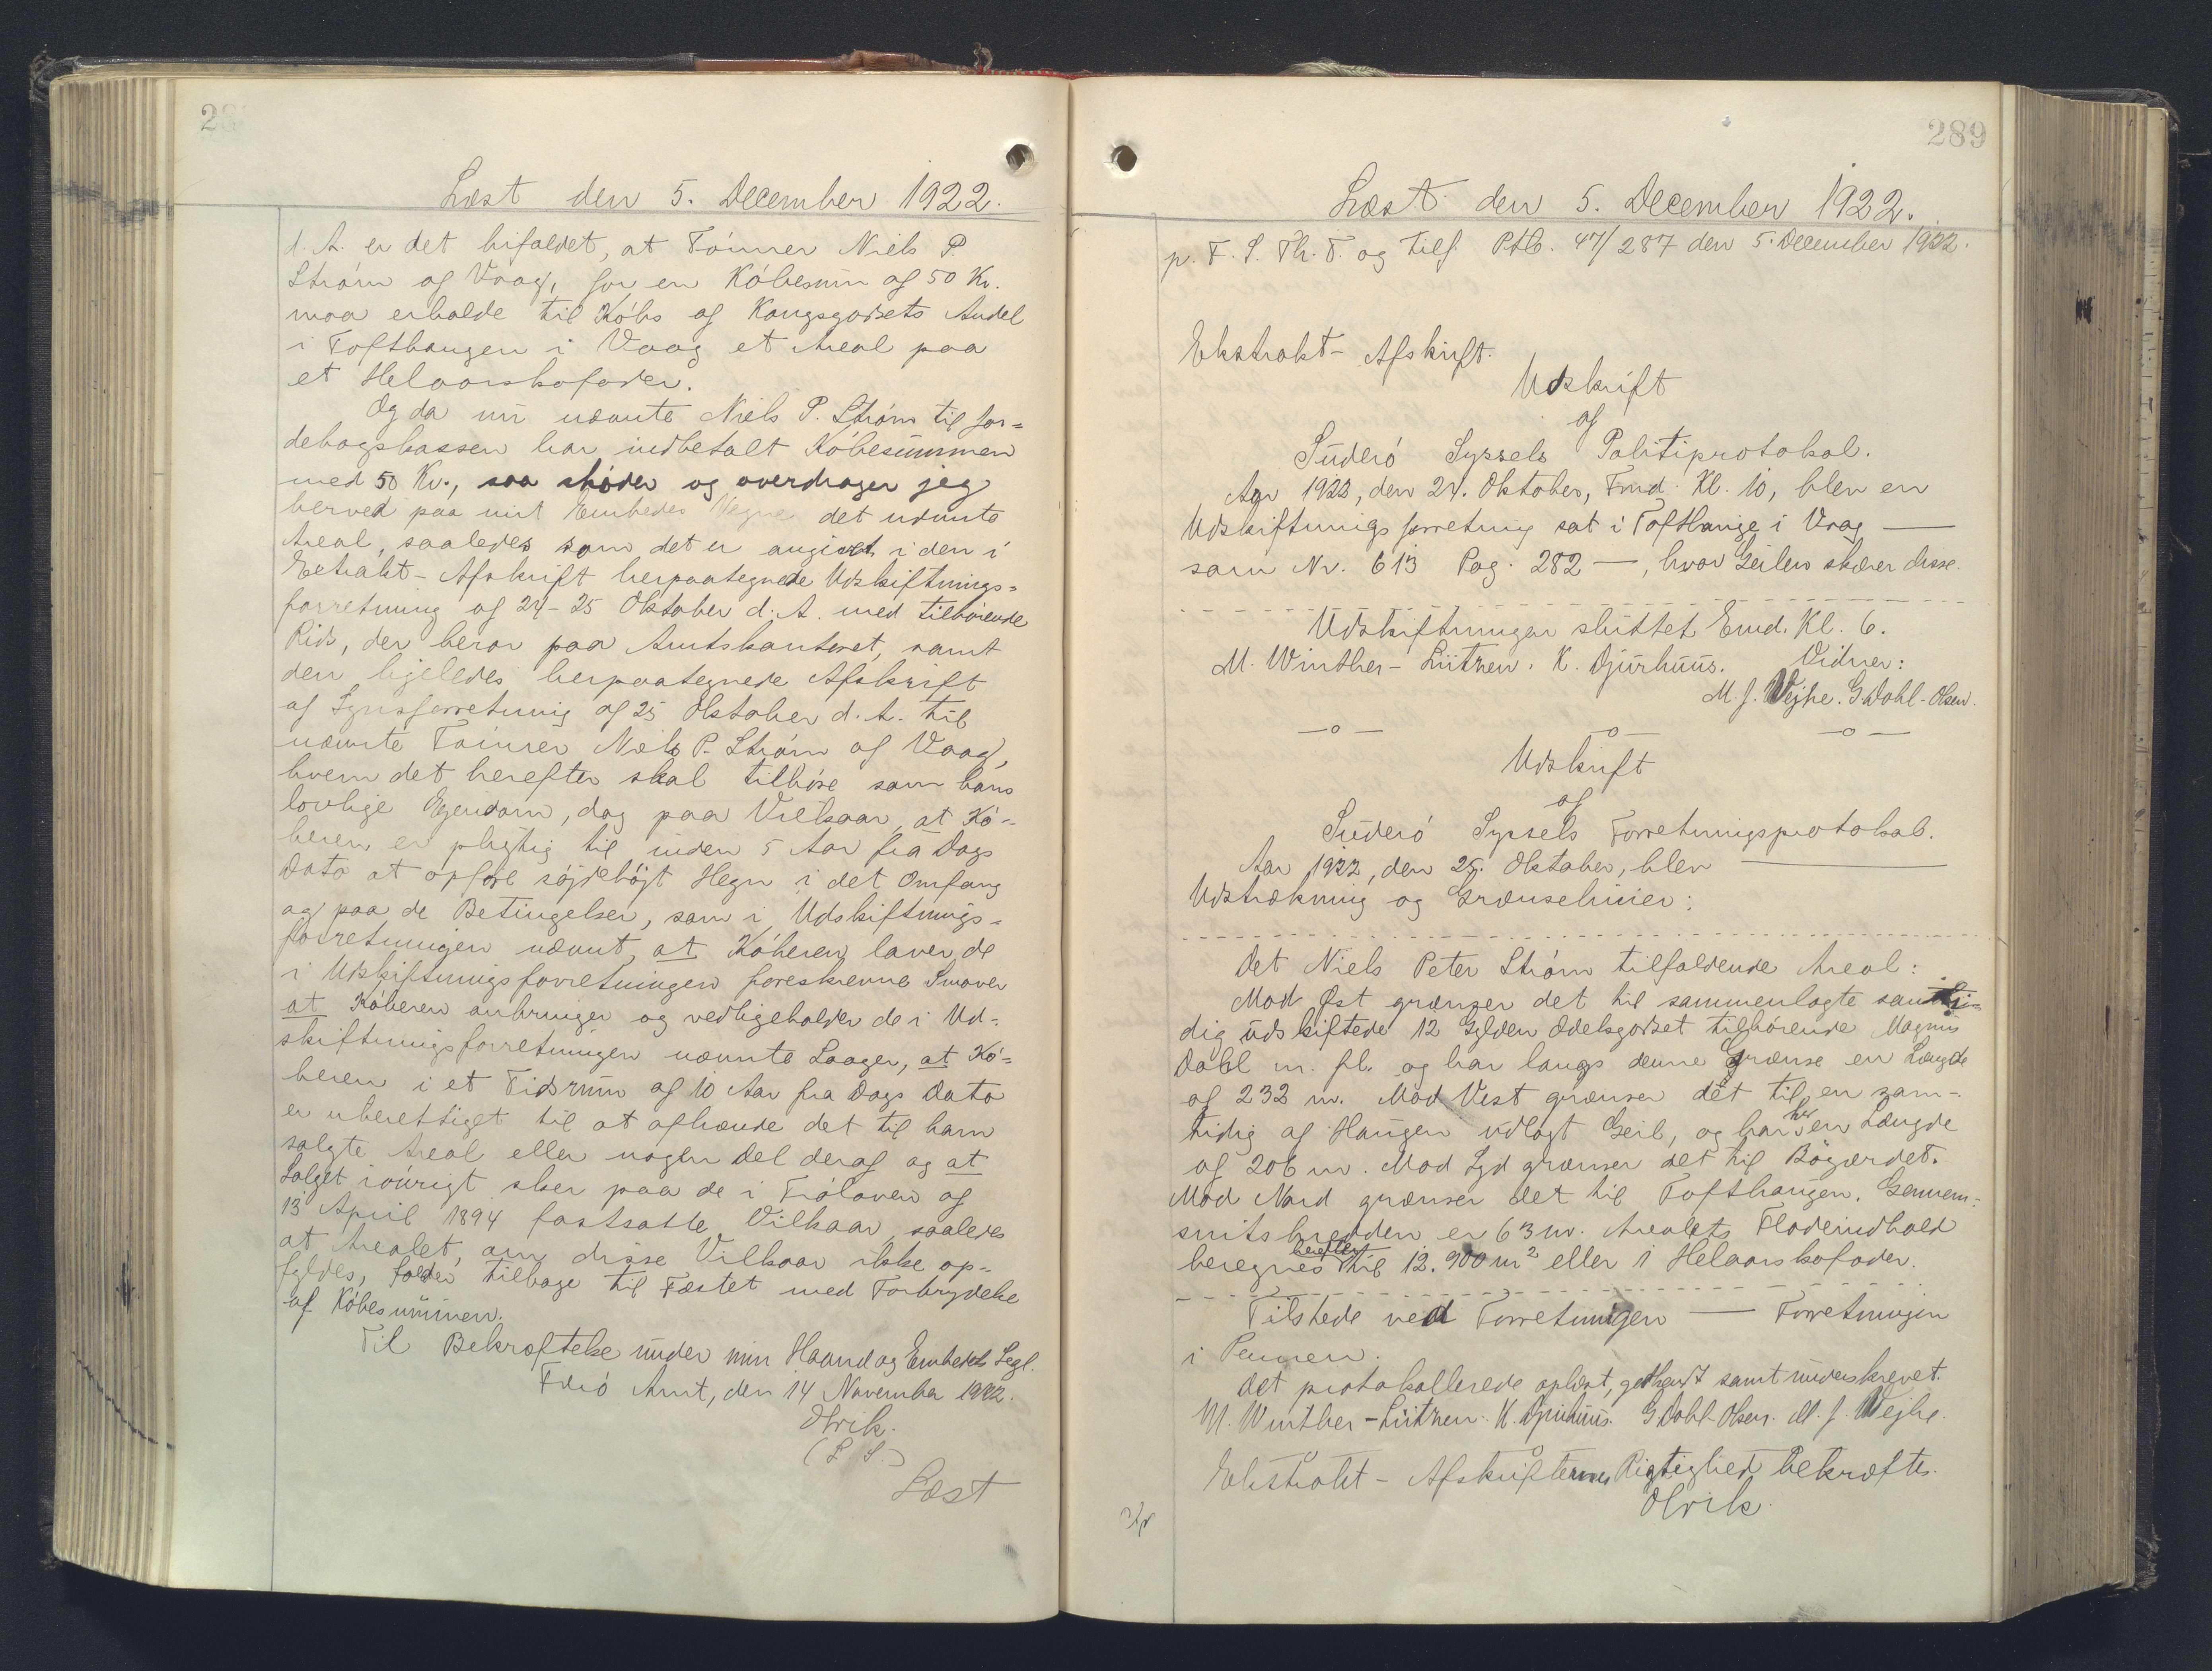 28
Læst den 5. December 1922.
d. A. er det bifaldet, at Tømrer Niels P.
Strøm af Vaag, for en Købesum af 50 Kr.
maa erholde til Købs af Kongsgodsets Andel
i Tofthaugen i Vaag et Areal paa
et Helaarskofoder.
Og da nu nævnte Niels P. Strøm til Jor=
debogskassen har indbetalt Købesummen
med 50 Kr., saa skøder og overdrager jeg
herved paa mit Embedes Vegne det nævnte
Areal, saaledes som det er angivet i den i
Extrakt-Afskrift herpaategnede Udskiftnings=
forretning af 24-25 Oktober d. A. med tilhørende
Rids, der beror paa Amtskontoret, samt
den ligeledes herpaategnede Afskrift
af Synsforretning af 25 Oktober d. A. til
nævnte Tømrer Niels P. Strøm af Vaag,
hvem det herefter skal tilhøre som hans
lovlige Ejendom, dog paa Vilkaar, at Kø-
beren er pligtig til inden 5 Aar fra Dags
Dato at opføre søjdehøjt Hegn i det Omfang
og paa de Betingelser, som i Udskiftnings=
forretningen nævnt, at Køberen laver de
i Udskiftningsforretningen foreskrevne Smøver
at Køberen anbringer og vedligeholder de i Ud=
skiftningsforretningen nævnte Laager, at Kø=
beren i et Tidsrum af 10 Aar fra Dags Dato
er uberettiget til at afhænde det til ham
solgte Areal eller nogen Del deraf og at
Salget iøvrigt sker paa de i Frøloven af
13 April 1894 fastsatte Vilkaar, saaledes
at Arealet, om disse Vilkaar ikke op=
fyldes, falder tilbage til Fæstet med Forbrydelse
af Købesummen.
Til Bekræftelse under min Haand og Embedets Segl.
Færø Amt, den 14 November 1922.
Olrik.
(L. S.)
Læst
289
Læst den 5. December 1922.
p. F. S. Th. T. og Tilf. Ptb. 47/287 den 5. December 1922.
Ekstrakt-Afskrift.
Udskrift
af
Suderø Syssels Politiprotokol.
Aar 1922, den 24. Oktober, Fmd. Kl. 10, blev en
Udskiftningsforretning sat i Tofthauge i Vaag —
som Nr. 613 Pag. 282 —, hvor Geilen skærer disse.
Udskiftningen sluttet Emd. Kl. 6.
M. Winther-Lützen. K. Djurhuus. Vidner:
M. J. Vejhe. G Dahl-Olsen.
—o— —o— —o—
Udskrift
af
Suderø Syssels Forretningsprotokol.
Aar 1922, den 25. Oktober, blev —
Udstrækning og Grænselinier:
Det Niels Peter Strøm tilfaldende Areal:
Mod Øst grænser det til sammenlagte samti=
dig udskiftede 12 Gylden Odelsgodset tilhørende Magnus
Dahl m. fl. og har langs denne Grænse en Længde
af 232 m. Mod Vest grænser det til en sam-
tidig af Haugen udlagt Geil, og har her en Længde
af 206 m. Mod Syd grænser det til Bøgærdet.
Mod Nord grænser det til Tofthaugen. Gennem=
snitsbredden er 63 m. Arealets Fladeindhold
beregnes herefter til 12.900 m² eller 1 Helaarskofoder.
Tilstede ved Forretningen — Forretningen
i Pennen.
Det protokollerede oplæst, godkendt samt underskrevet.
M. Winther-Lützen. K. Djurhuus. G Dahl-Olsen. M. J. Vejhe.
Ekstrakt-Afskrifternes Rigtighed bekræftes.
Olrik.